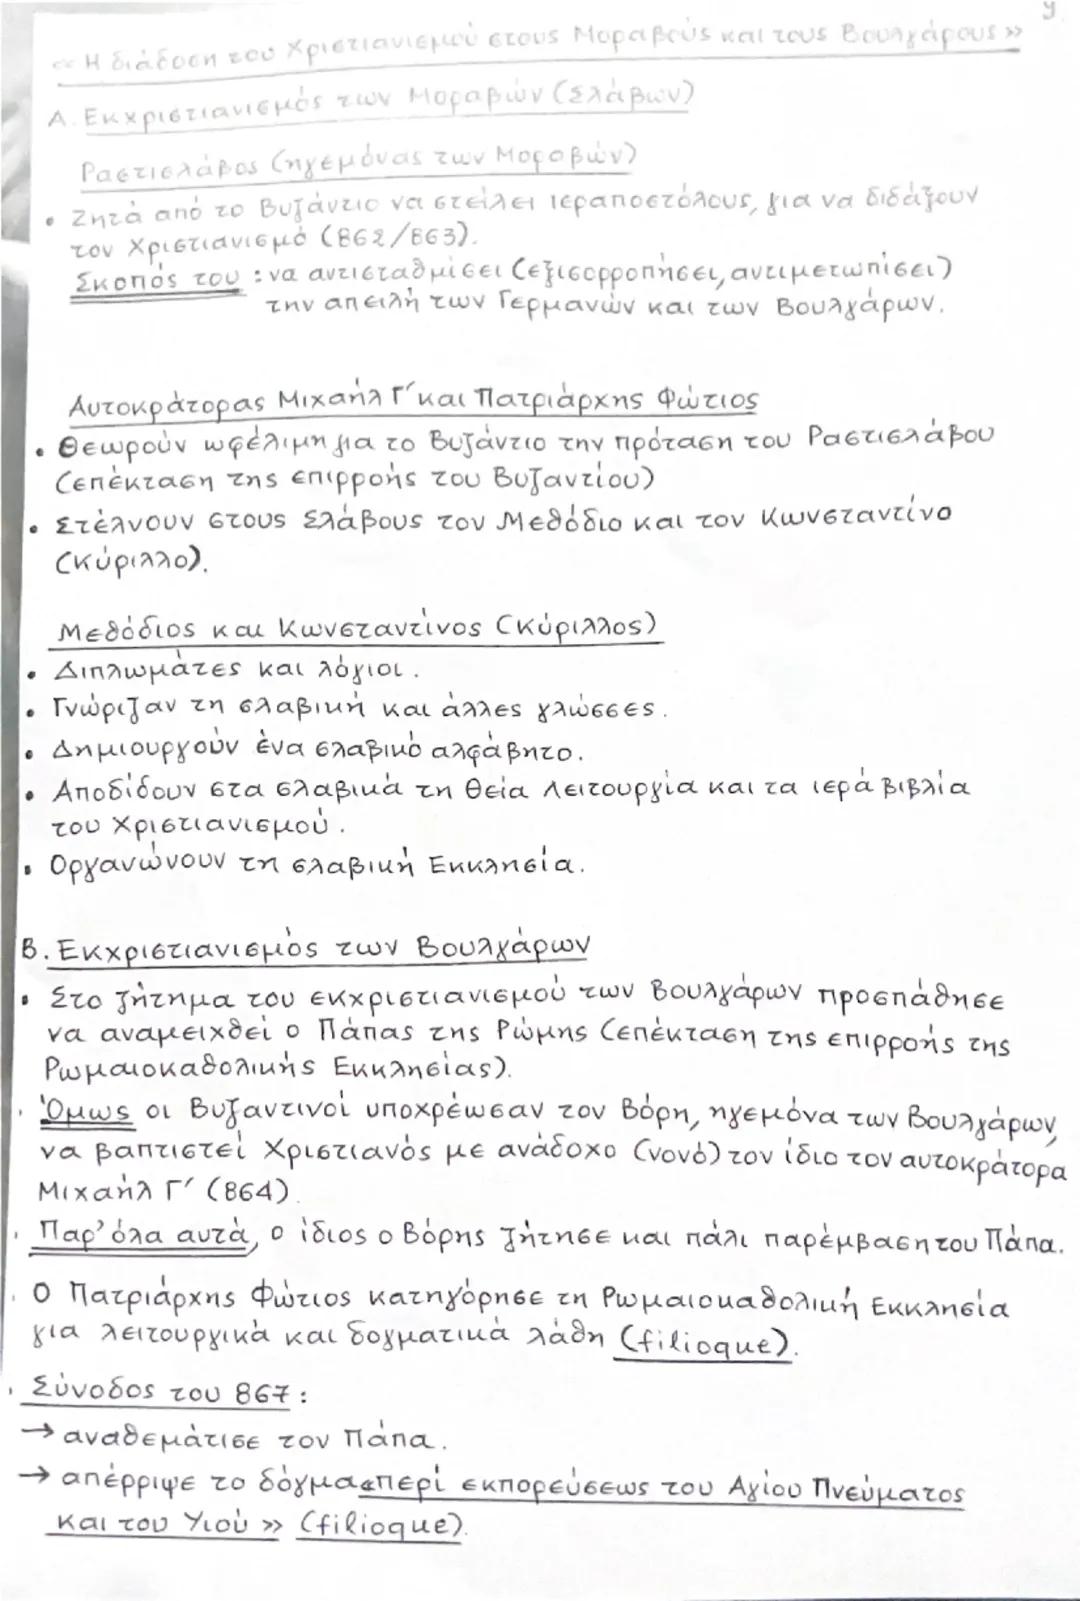 9
« Η διάδοση του Χριστιανισμού στους Μοραβούς και τους Βουλγάρους »
Α. Εκχριστιανισμός των Μοραβών (Σλάβων)
Ραστισλάβος (ηγεμόνας των Μοραβών)
• Ζητά από το Βυζάντιο να στείλει ιεραποστόλους, για να διδάξουν
τον Χριστιανισμό (862/863).
Σκοπός του : να αντισταθμίσει (εξισορροπήσει, αντιμετωπίσει)
την απειλή των Γερμανών και των Βουλγάρων.
Αυτοκράτορας Μιχαήλ Γ΄ και Πατριάρχης Φώτιος
• Θεωρούν ωφέλιμη για το Βυζάντιο την πρόταση του Ραστισλάβου
(επέκταση της επιρροής του Βυζαντίου)
• Στέλνουν στους Σλάβους τον Μεθόδιο και τον Κωνσταντίνο
(Κύριλλο).
Μεθόδιος και Κωνσταντίνος (Κύριλλος)
• Διπλωμάτες και λόγιοι.
• Γνώριζαν τη σλαβική και άλλες γλώσσες.
• Δημιουργούν ένα σλαβικό αλφάβητο.
• Αποδίδουν στα σλαβικά τη Θεία Λειτουργία και τα ιερά βιβλία
του Χριστιανισμού.
• Οργανώνουν τη σλαβική Εκκλησία.
Β. Εκχριστιανισμός των Βουλγάρων
• Στο ζήτημα του εκχριστιανισμού των Βουλγάρων προσπάθησε
να αναμειχθεί ο Πάπας της Ρώμης (επέκταση της επιρροής της
Ρωμαιοκαθολικής Εκκλησίας).
• Όμως οι Βυζαντινοί υποχρέωσαν τον Βόρη, ηγεμόνα των Βουλγάρων,
να βαπτιστεί Χριστιανός με ανάδοχο (νονό) τον ίδιο τον αυτοκράτορα
Μιχαήλ Γ΄ (864).
• Παρ' όλα αυτά, ο ίδιος ο Βόρης ζήτησε και πάλι παρέμβαση του Πάπα.
• Ο Πατριάρχης Φώτιος κατηγόρησε τη Ρωμαιοκαθολική Εκκλησία
για λειτουργικά και δογματικά λάθη (filioque).
• Σύνοδος του 867 :
→ αναθεμάτισε τον Πάπα.
→ απέρριψε το δόγμα «περί εκπορεύσεως του Αγίου Πνεύματος
και του Υιού » (filioque).